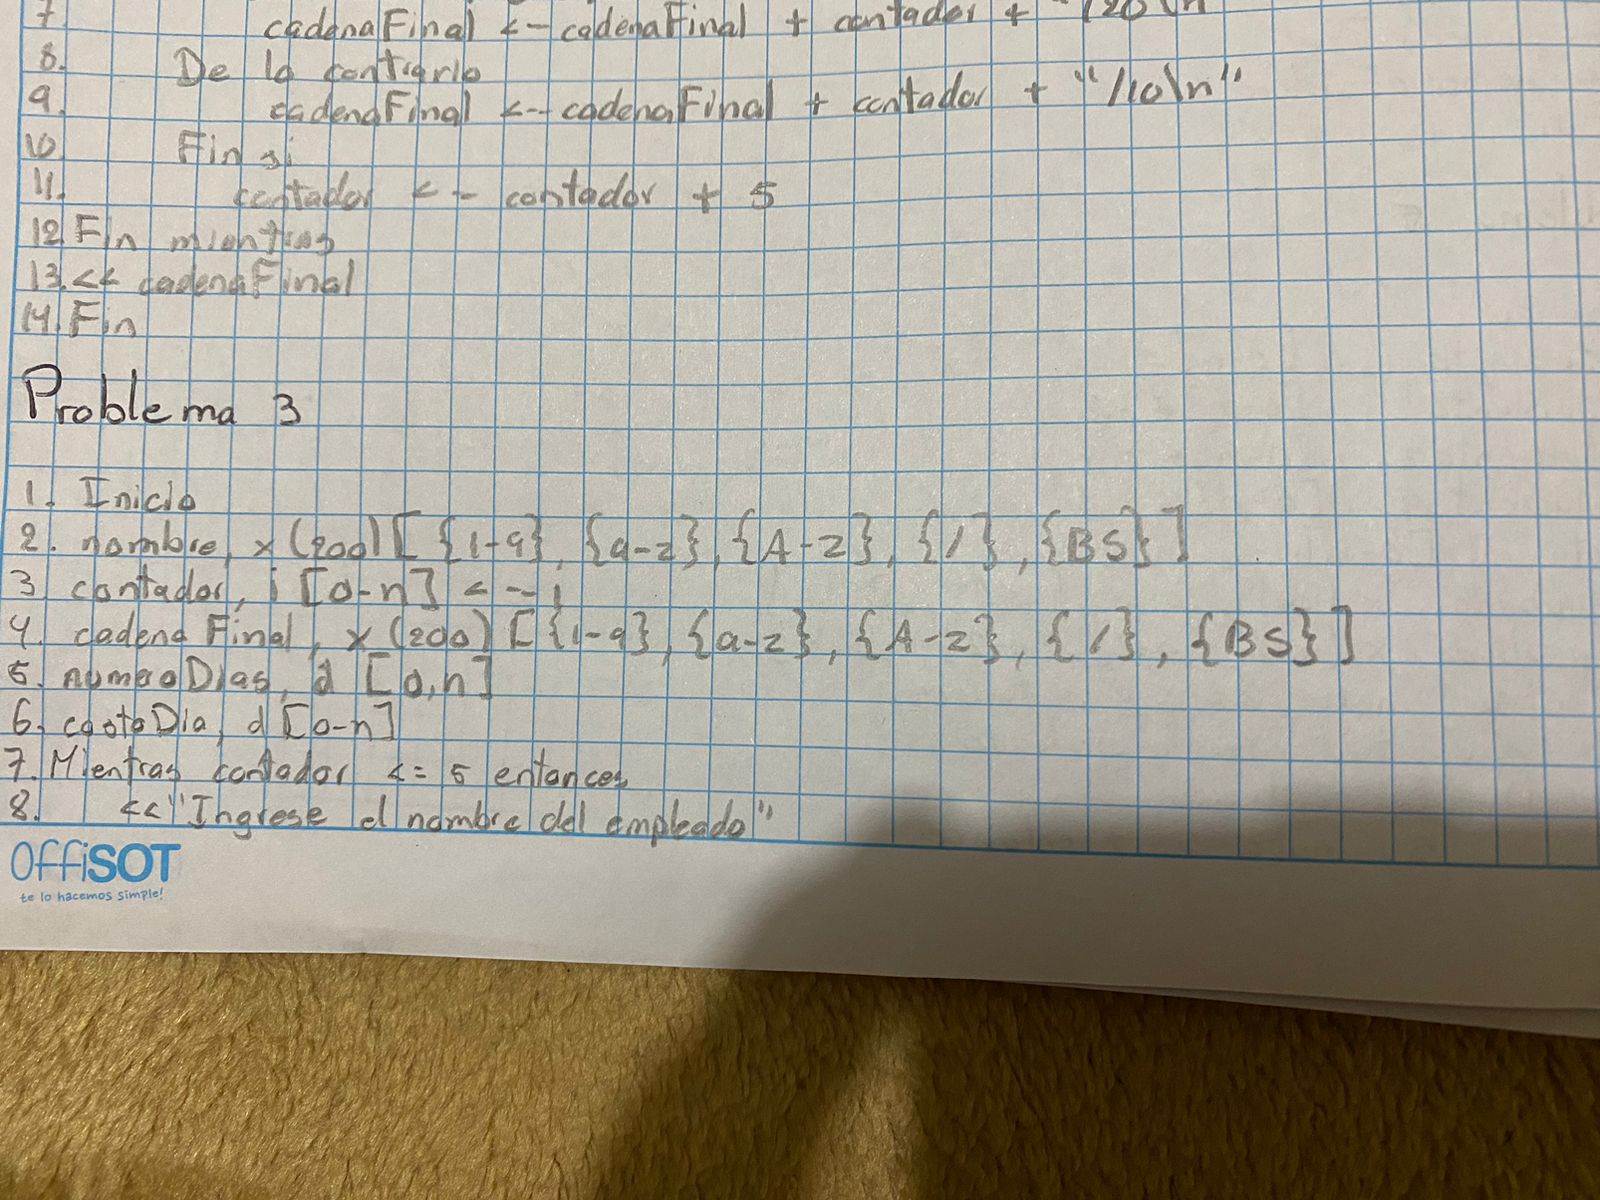 7 cadenaFinal <-- cadenaFinal + contador + "/20\n
8. De lo contrario
9. cadenaFinal <-- cadenaFinal + contador + "/10\n"
10 Fin si
11. contador <-- contador + 5
12 Fin mientras
13. << cadenaFinal
14. Fin
Problema 3
1. Inicio
2. nombre, x (200) [ {1-9}, {a-z}, {A-z}, {/}, {BS} ]
3 contador, i [0-n] <-- 1
4. cadena Final, x (200) [ {1-9}, {a-z}, {A-z}, {/}, {BS} ]
5. numeroDias, d [0,n]
6. costoDia, d [0-n]
7. Mientras contador <= 5 entonces
8. <<"Ingrese el nombre del empleado"
OffiSOT
te lo hacemos simple!